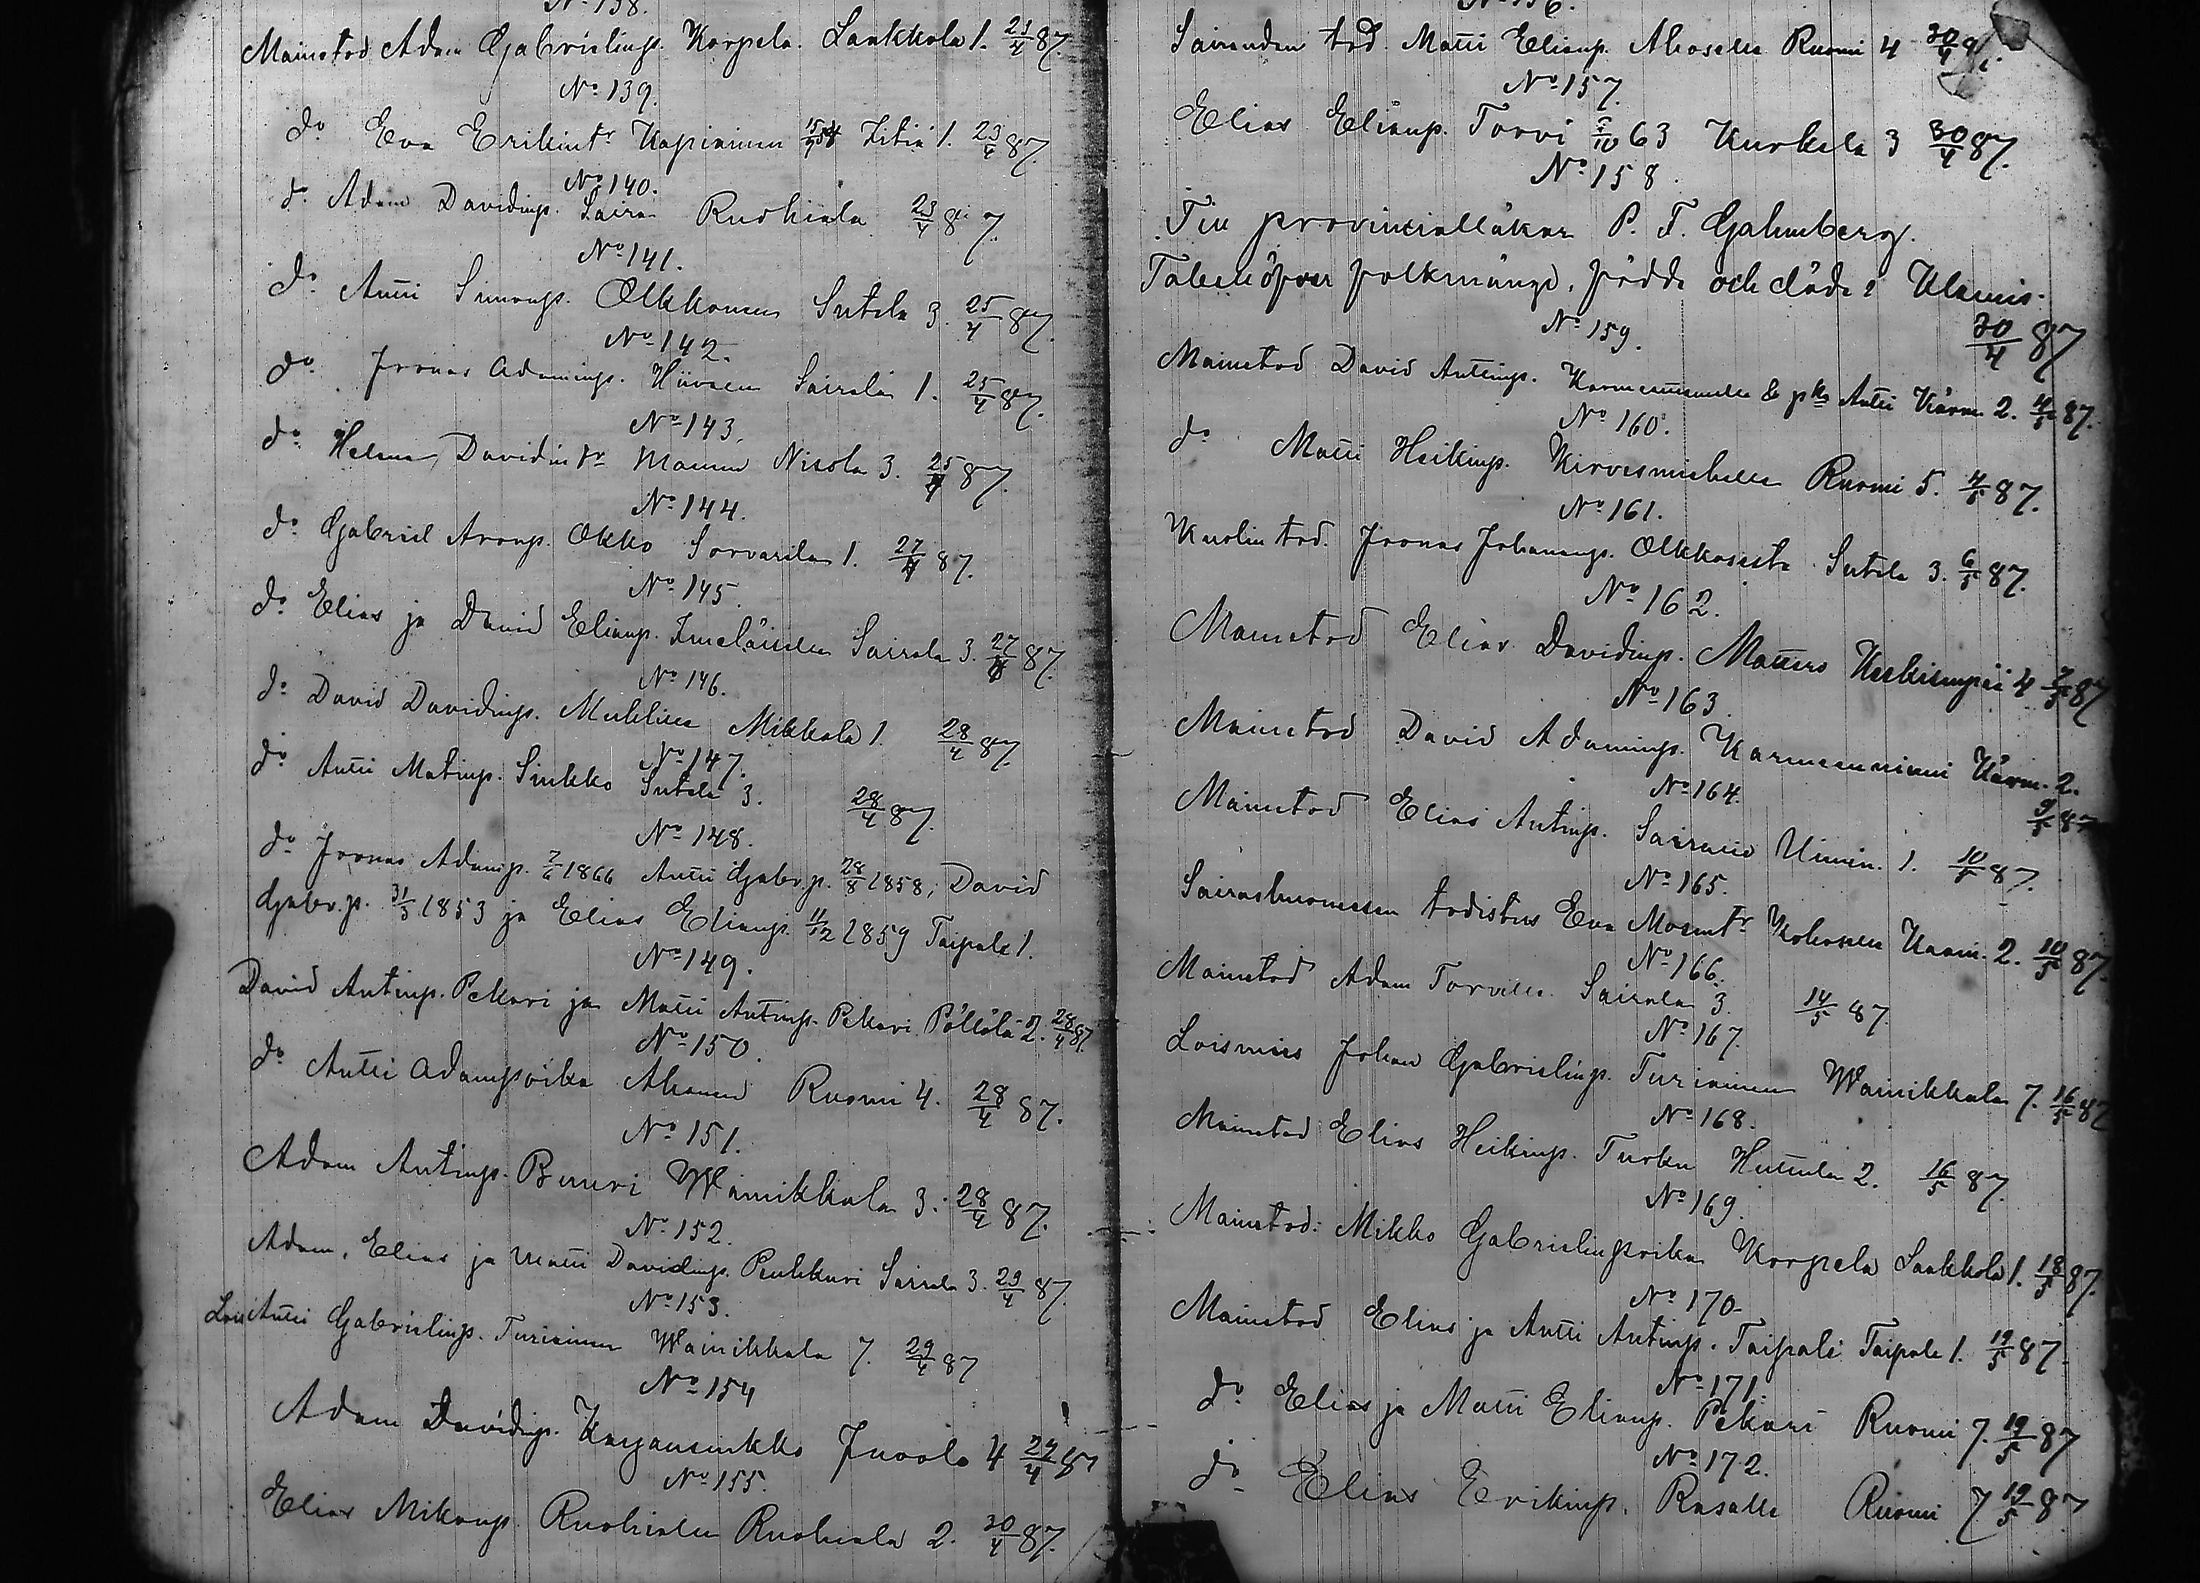 No 138.
Mainetod Adam Gabrielinp. Korpela. Laakkola 1. 21/4 87.
No 139.
do Eva Erikint. Kapiainen Zitiä 1. 23/4 87.
No 140.
do Adam Davidinp. Saira Ruohiala 23/4 87.
No 141.
do Antti Simonp. Olkkonen Sutela 3. 25/4 87.
No 142.
do Joonas Adaminp. Hiivaen Sairala 1. 25/4 87.
No 143.
do Helena Davidintr Nisola 3. 25/4 87.
No 144.
do Gabriel Aronp. Okko Sorvarila 1. 27/4 87.
No 145.
do Elias ja David Elianp. Imeläiselle Sairala 3. 27/4 87.
No 146.
do David Davidinp. Mikkola 1. 28/4 87.
No 147.
do Antti Matinp. Sinkko Sutela 3. 28/4 87.
No 148.
do Joonas Adamp. 1866 Antti Gabr.p. 28/8 1858, David
Gabr.p. 31/3 1853 ja Elias Elianp. 11/12 1859 Taipale 1.
No 149.
David Antinp. Pekari ja Matti Antinp. Pekari Pöllölä 2. 28/4 87.
No 150.
do Antti Adaminpoika Ahonen Ruomi 4. 28/4 87.
No 151.
Adam Antinp. Buuri Wainikkala 3. 28/4 87.
No 152.
Adam, Elias ja Matti Davidinp. Penkkuri Sairala 3. 29/4 87.
No 153.
Lois Antti Gabrielinp. Turiainen Wainikkala 7. 29/4 87
No 154
Adam Davidinp. Kaijansinkko Juvola 4 29/4 87
No 155.
Elias Mikonp. Ruohiala 2. 30/4 87.
No 156.
Sairauden tod. Matti Elianp. Ahoselle Ruomi 4 30/4
No 157.
Elias Elianp. Torvi 63 Kurkela 3 30/4 87.
No 158.
Till provinciälläkar P. F. Gahmberg.
Tabell öfver folkmängd, födde och döde i Klemis.
30/4 87
No 159.
Mainetod David Antinp. & pka Antti Kärm. 2. 4/5 87.
No 160.
do Matti Heikinp. Kirvesmiehelle Ruomi 5. 4/5 87.
No 161.
Kuolin tod. Joonas Johaninp. Olkkosesta Sutela 3. 6/5 87.
No 162.
Mainetod Elias Davidinp. 4 7/5 87
No 163.
Mainetod David Adaminp. Kärm. 2.
9/5 87
No 164.
Mainetod Elias Antinp. 1. 10/5 87.
No 165.
todistus Eva Kohoselle 2. 10/5 87.
No 166.
Mainetod Adam Torvelle Sairala 3. 14/5 87.
No 167.
Loismies Johan Gabrielinp. Turiainen Wainikkala 7. 16/5 87
No 168.
Mainetod Elias Heikinp. Turku Huttula 2. 16/5 87.
No 169.
Mainetod. Mikko Gabrielinpoika Korpela Laakkola 1. 18/5 87.
No 170
Mainetod Elias ja Antti Antinp. Taipale Taipale 1. 19/5 87.
No 171.
do Elias ja Matti Elianp. Pekari Ruomi 7. 19/5 87
No 172.
do Elias Erikinp. Rasalle Ruomi 7 19/5 87